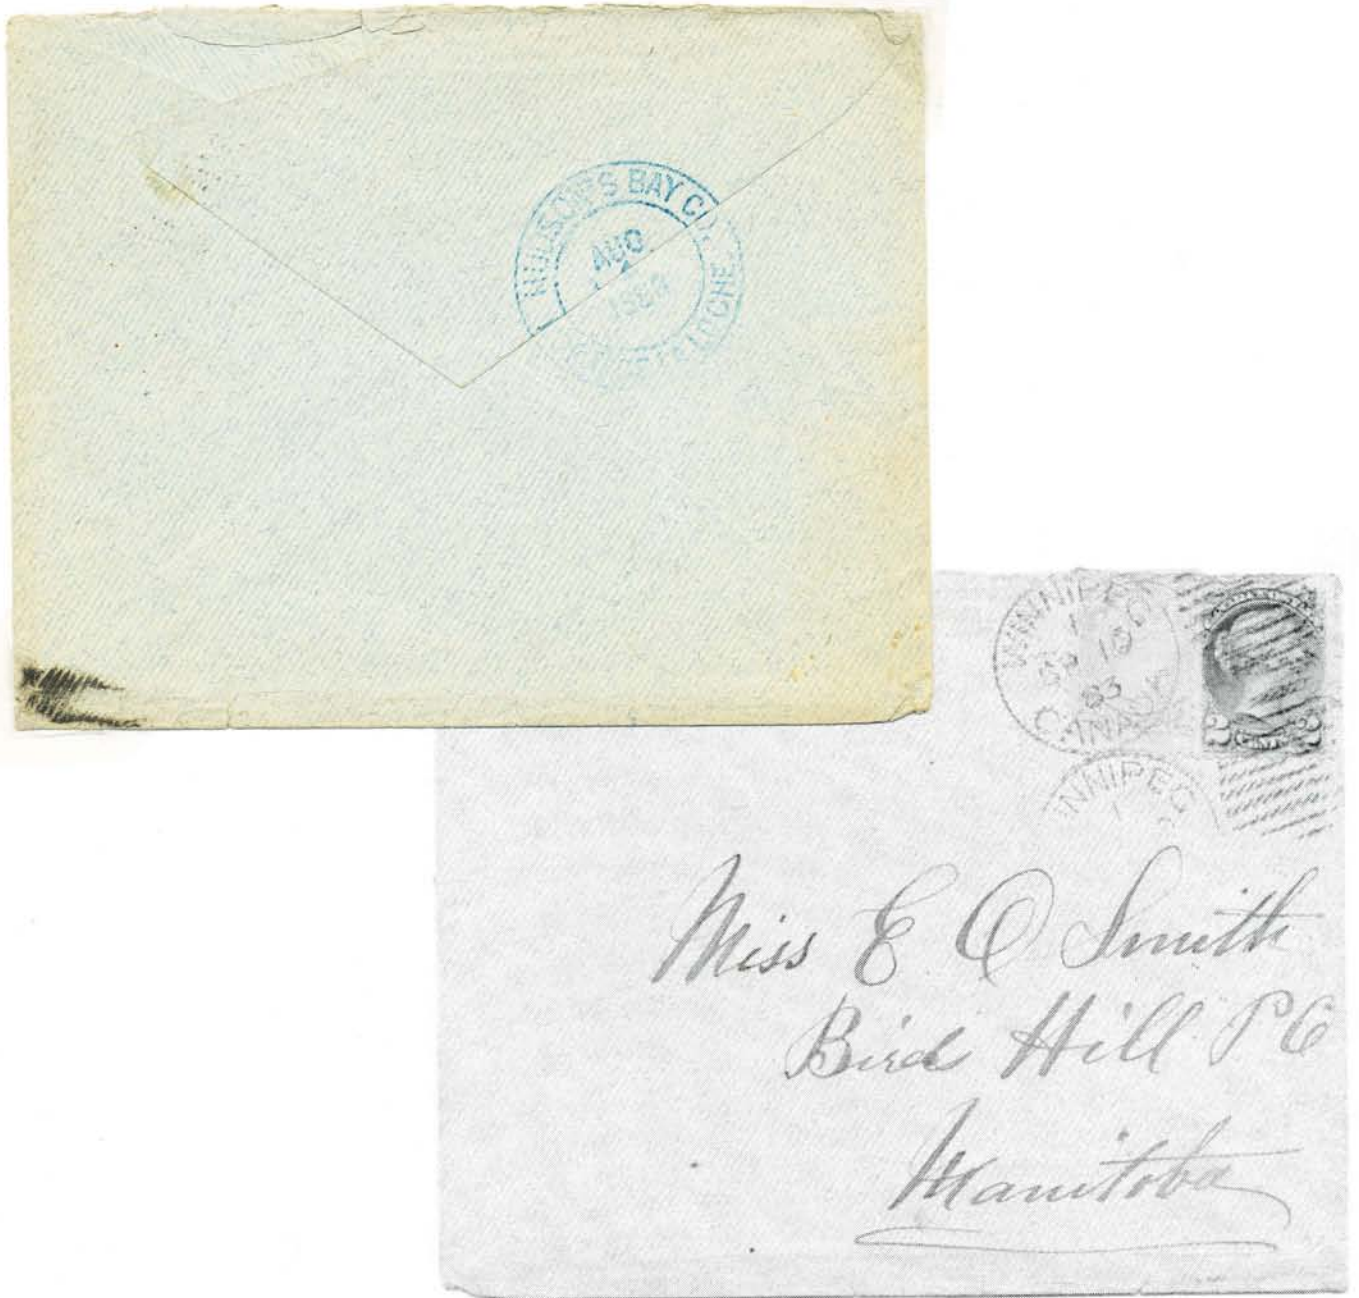 HUDSON'S BAY CO.
AUG
LOCHE
WINNIPEG
1
15
83
CANADA
WINNIPEG
1
2 CENTS 2
Miss E O Smith
Bird Hill P O
Manitoba